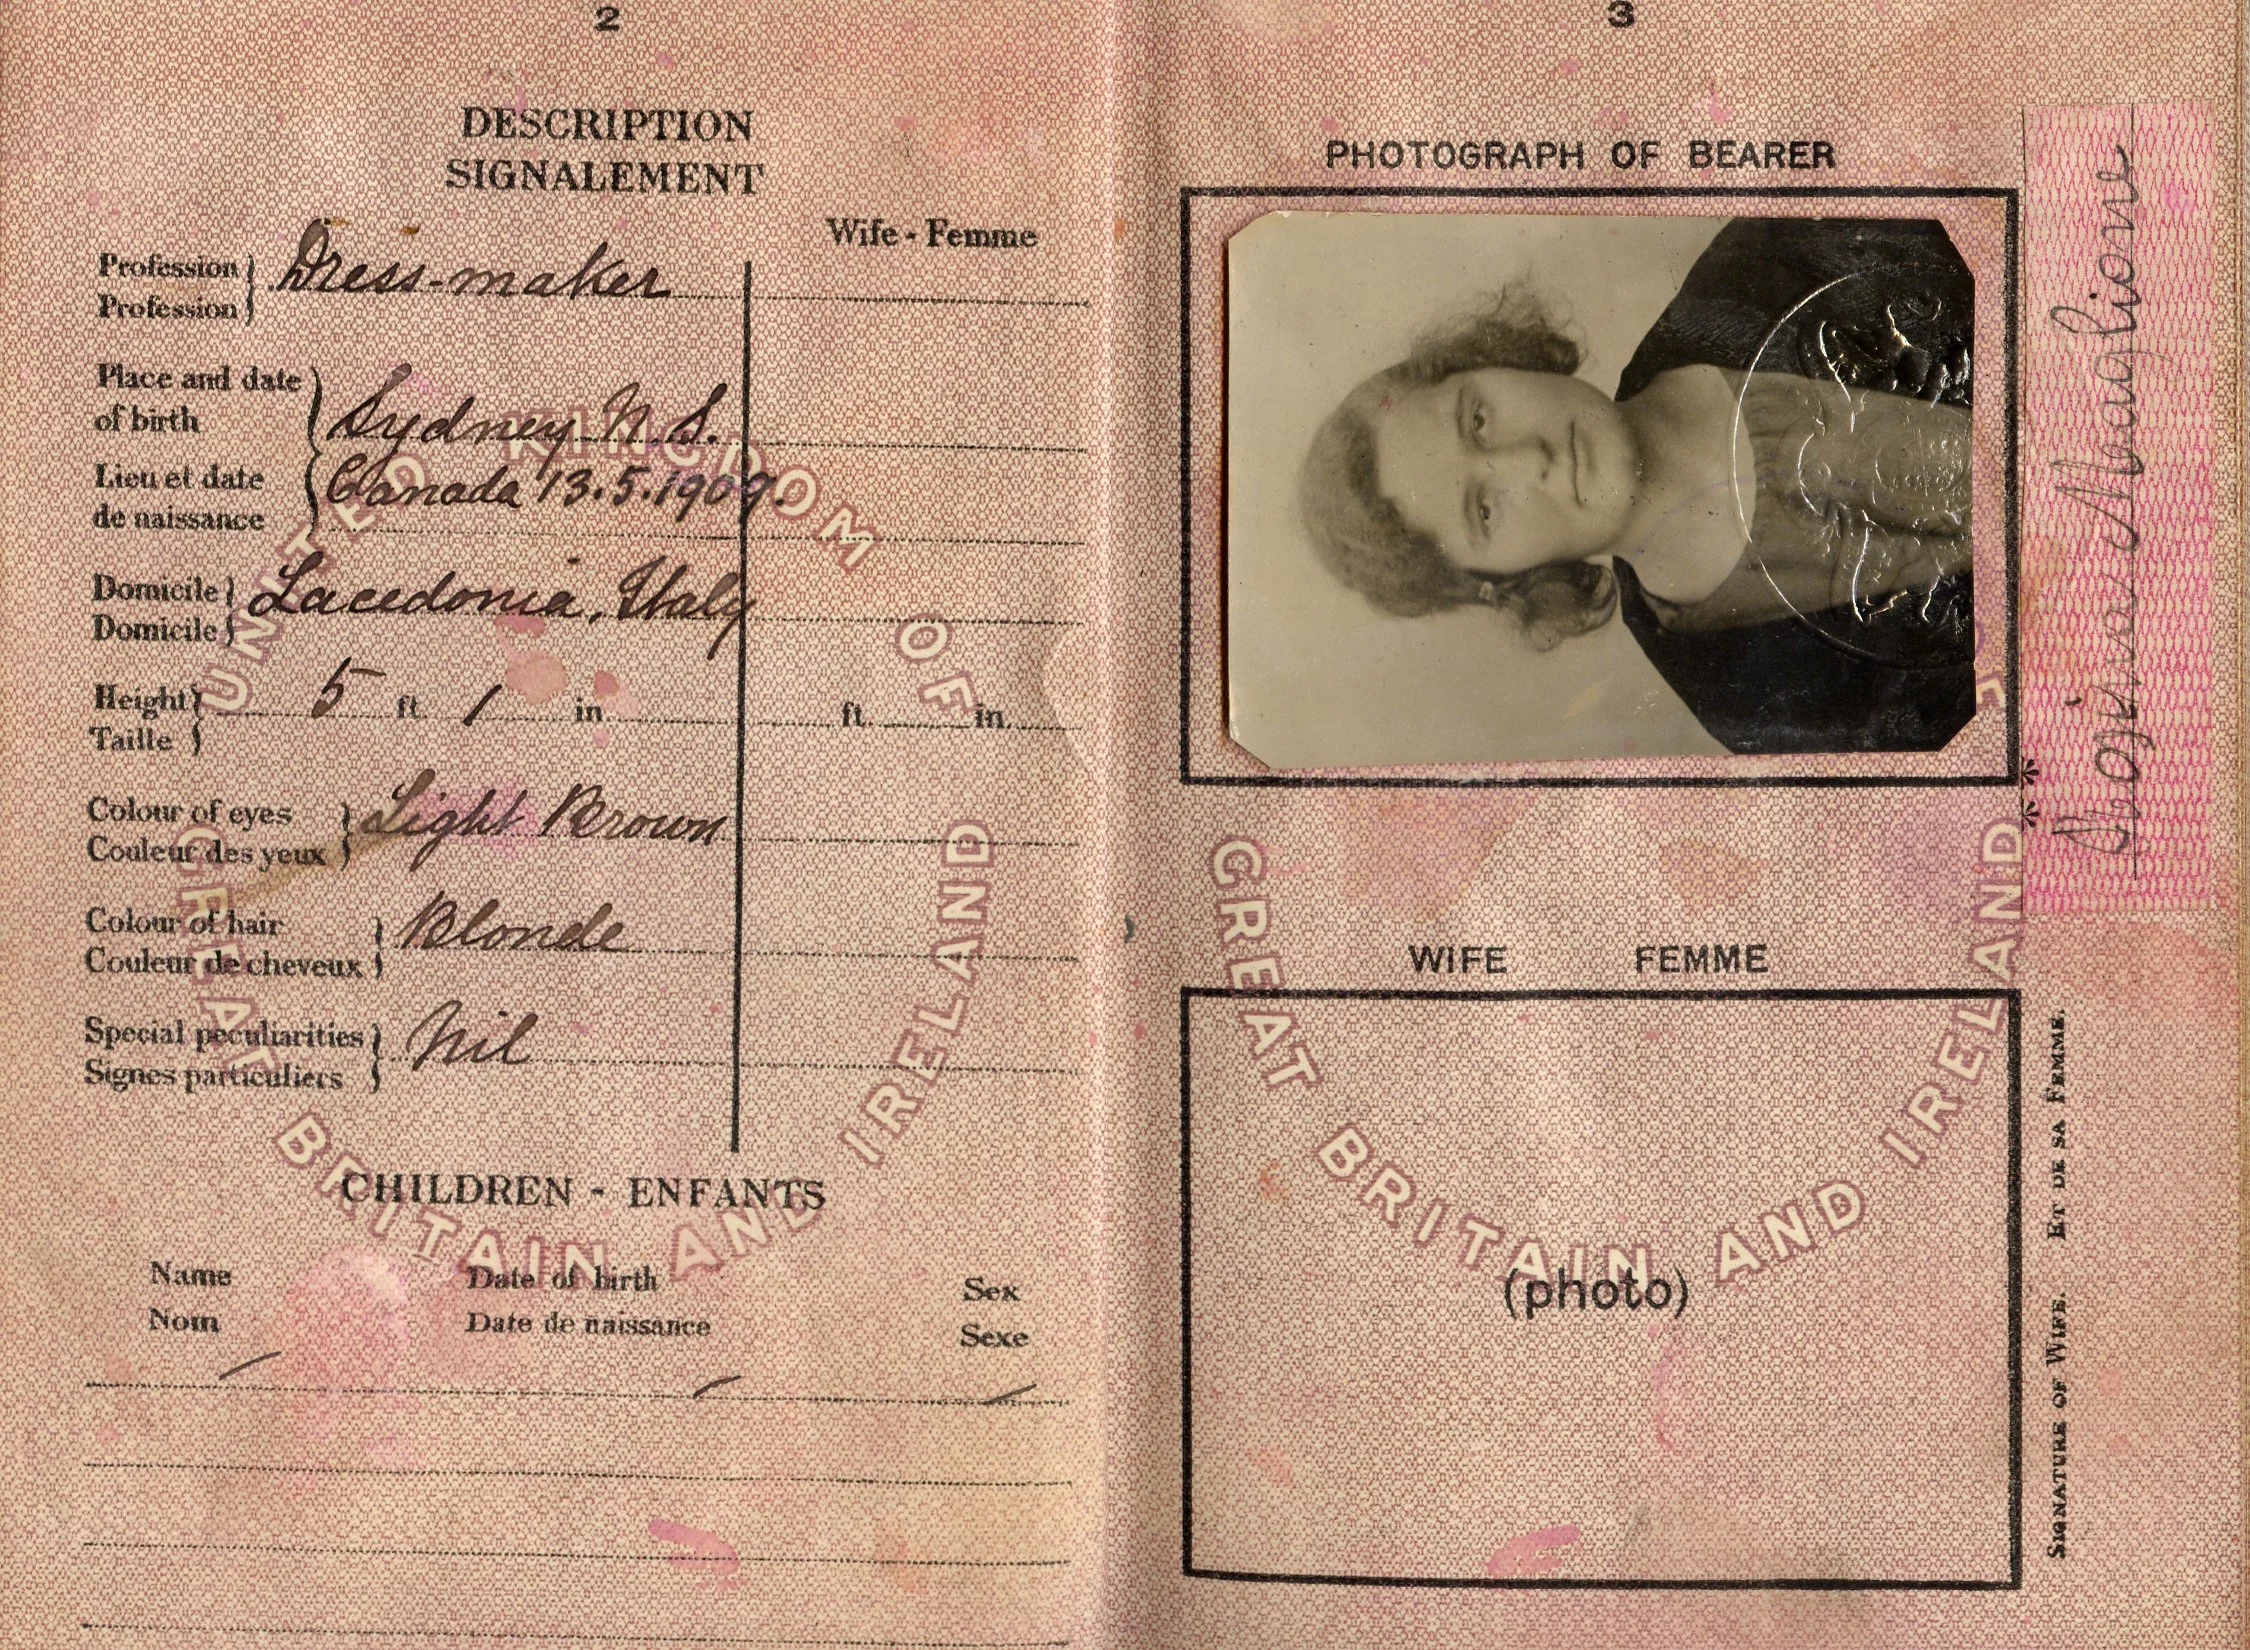 2
DESCRIPTION
SIGNALEMENT
Wife - Femme
Profession
Profession
Dress-maker
Place and date
of birth
Lieu et date
de naissance
Sydney N.S.
Canada 13.5.1909.
Domicile
Domicile
Lacedonia, Italy
Height
Taille
5 ft. 1 in.
ft. in.
Colour of eyes
Couleur des yeux
Light Brown
Colour of hair
Couleur de cheveux
Blonde
Special peculiarities
Signes particuliers
Nil
UNITED KINGDOM OF
GREAT BRITAIN AND IRELAND
CHILDREN - ENFANTS
Name Date of birth Sex
Nom Date de naissance Sexe
3
PHOTOGRAPH OF BEARER
Maglione
WIFE FEMME
GREAT BRITAIN AND IRELAND
(photo)
SIGNATURE OF WIFE. ET DE SA FEMME.